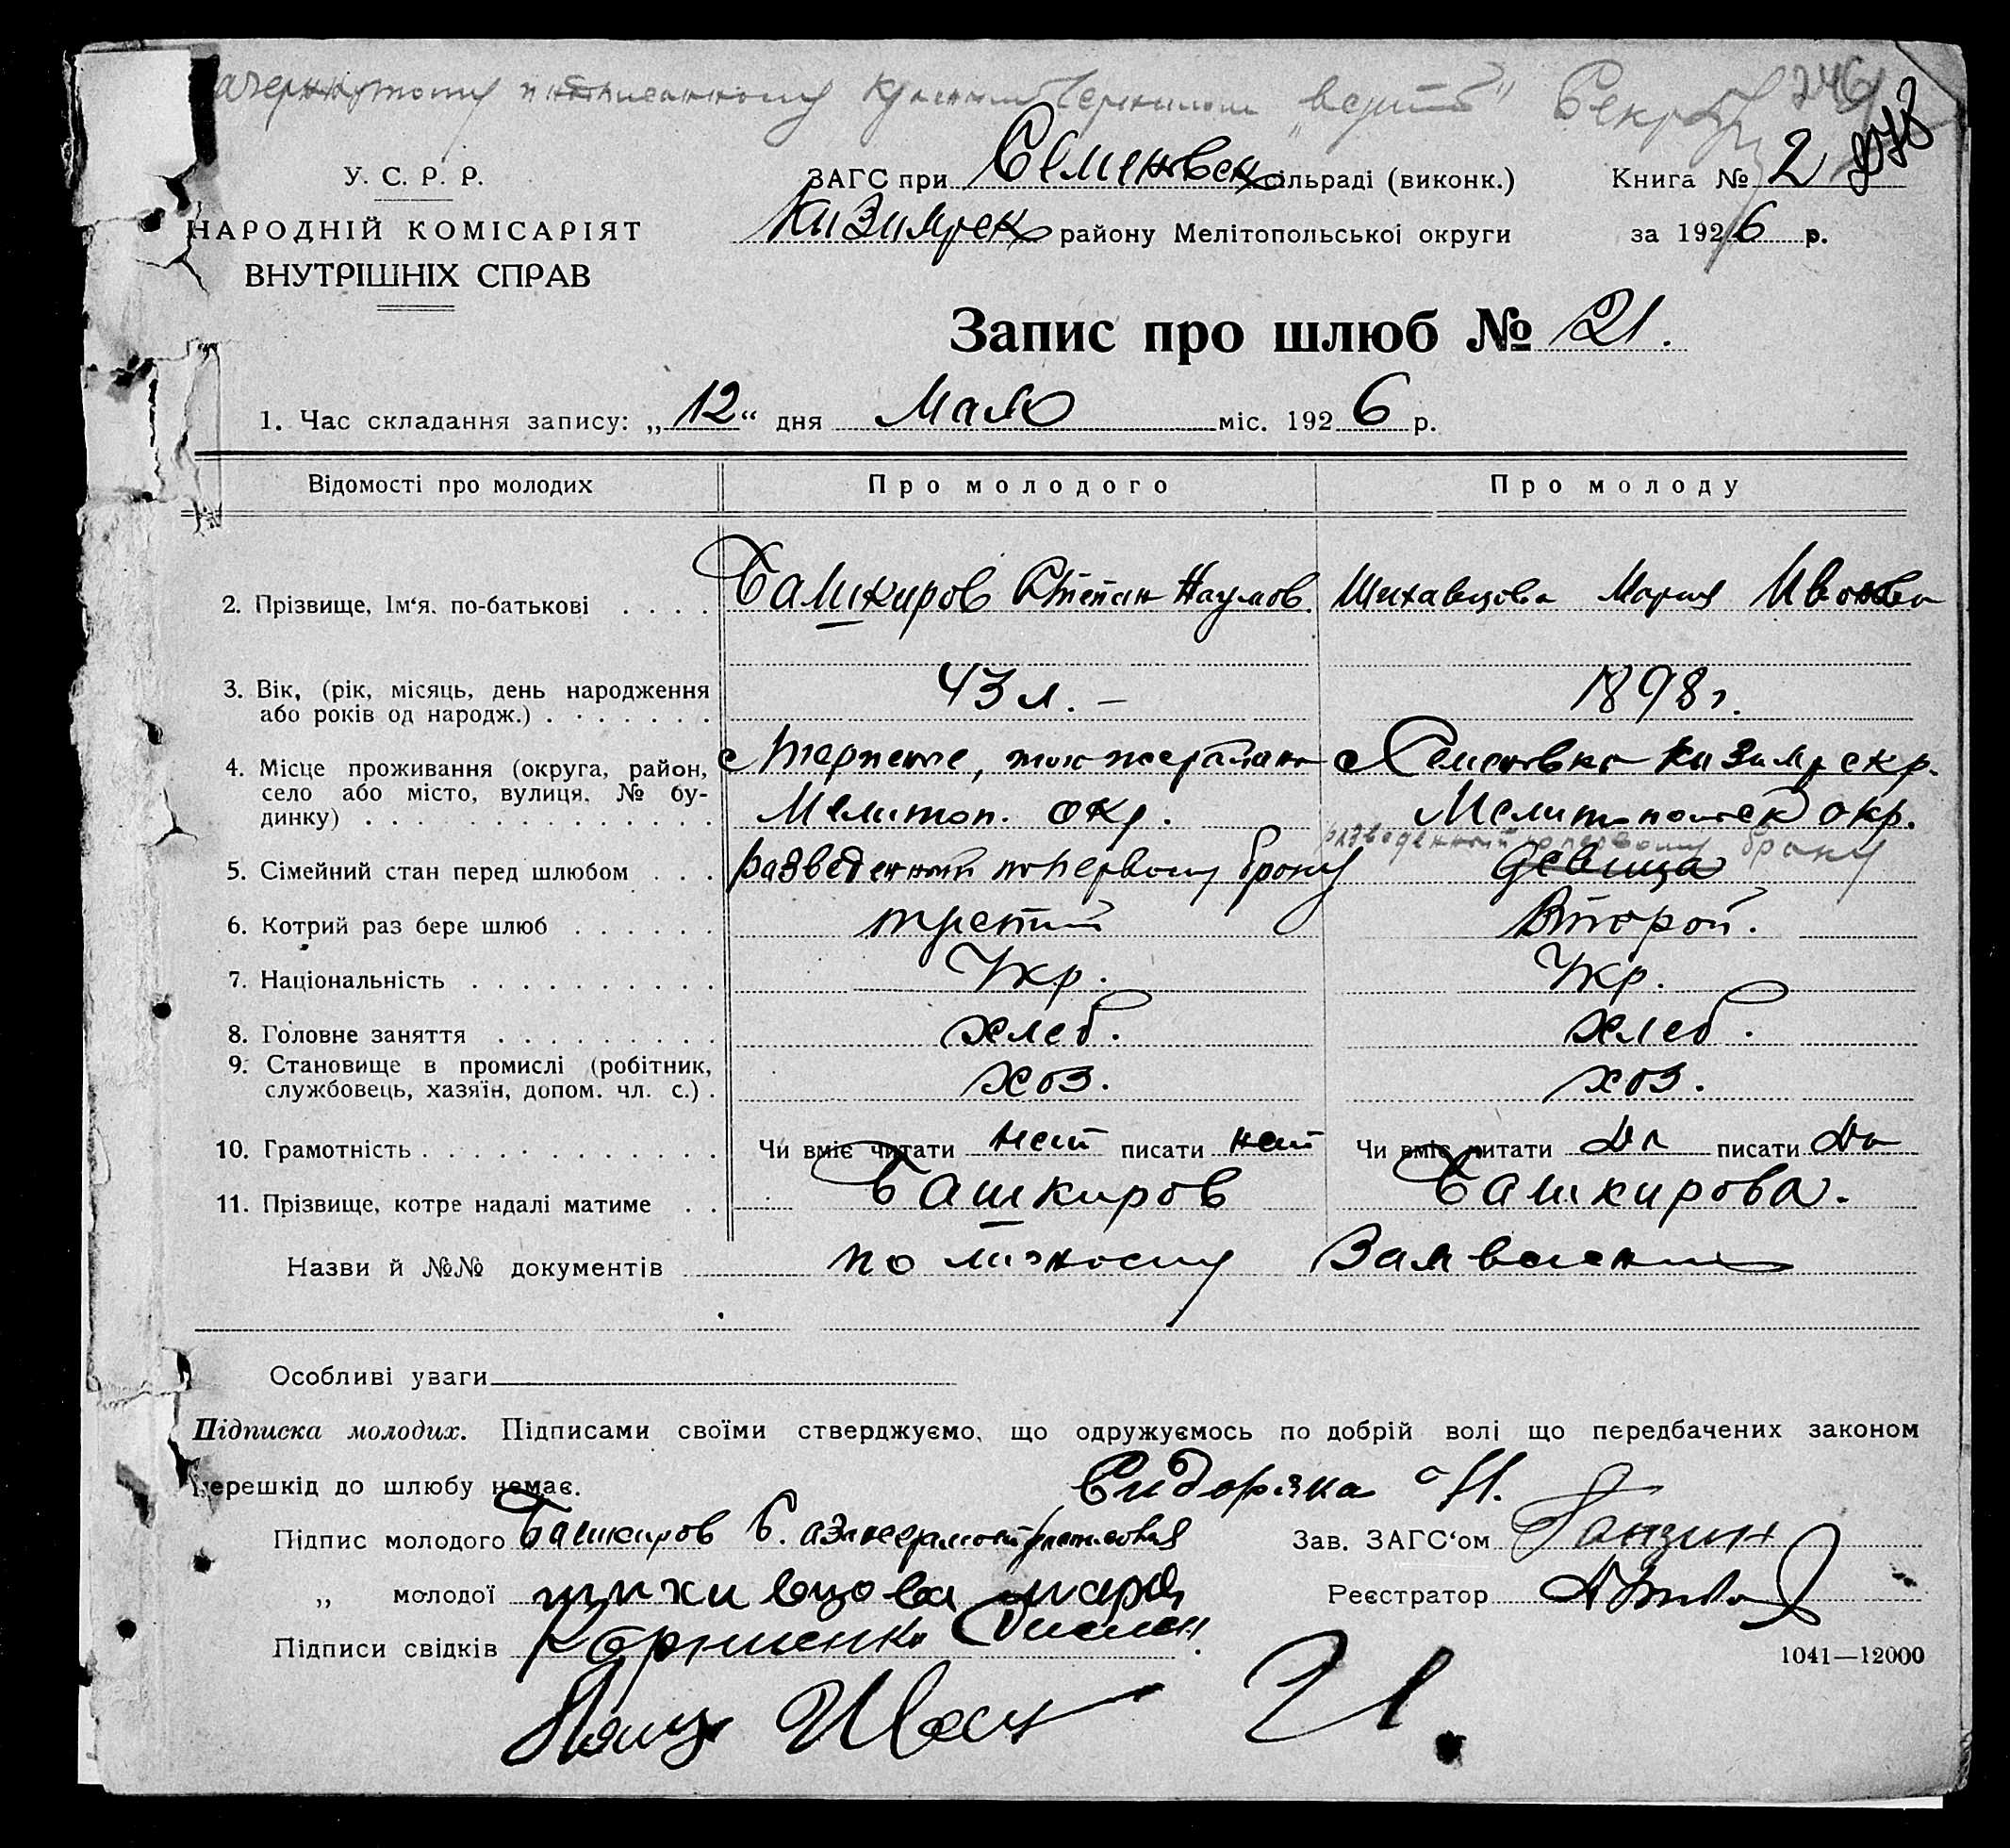 зачеркнутому и написанному красными чернилами „верить" Секр 246
У. С. Р. Р.
НАРОДНІЙ КОМІСАРІЯТ
ВНУТРІШНІХ СПРАВ
ЗАГС при Семеновск сільраді (виконк.) Книга № 2
Кизиярск району Мелітопольської округи за 1926 р.
Запис про шлюб № 21.
1. Час складання запису: „12" дня Маяо міс. 1926 р.
Відомості про молодих Про молодого Про молоду
2. Прізвище, Ім'я, по-батькові Башкиров Степан Наумов. Шихавцова Мария Ивановна
3. Вік, (рік, місяць, день народження 43 л. – 1898 г.
або років од народж.)
4. Місце проживання (округа, район, с Терпение, с Семеновка Кизиярск р.
село або місто, вулиця, № бу- Мелитоп. окр. Мелитопольск окр.
динку)
разведенный по первому браку
5. Сімейний стан перед шлюбом разведенный по первому браку девица
6. Котрий раз бере шлюб третий Второй.
7. Національність Укр. Укр.
8. Головне заняття хлеб. хлеб.
9. Становище в промислі (робітник, хоз. хоз.
службовець, хазяїн, допом. чл. с.)
10. Грамотність Чи вміє читати нет писати нет Чи вміє читати Да писати Да
11. Прізвище, котре надалі матиме Башкиров Башкирова.
Назви й №№ документів по личному Заявлению
Особливі уваги
Підписка молодих. Підписами своїми стверджуємо, що одружуємось по добрій волі що передбачених законом
перешкід до шлюбу немає. Сидоряка
Підпис молодого Башкиров С. а за неграмотн расписался Зав. ЗАГС'ом Ганзин
„ молодої шихивцова мария Реєстратор
Підписи свідків Корниенко
1041—12000